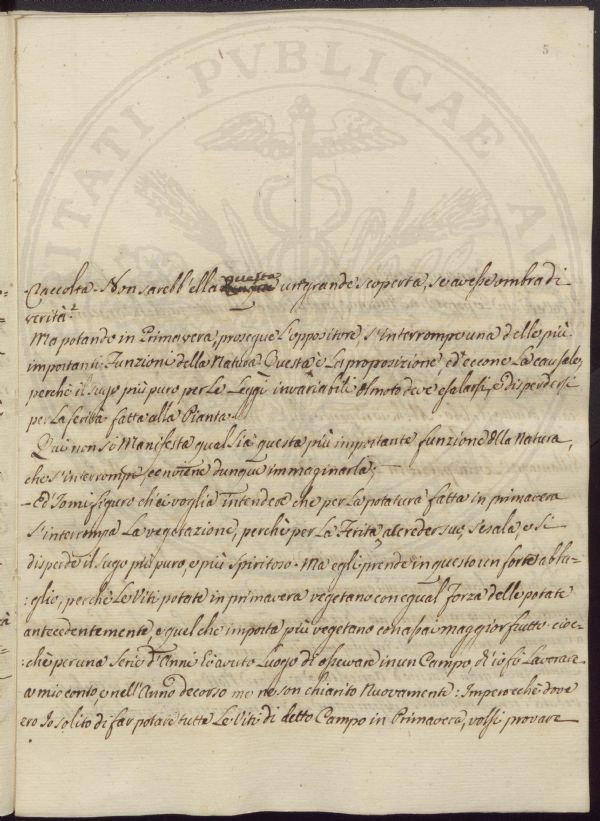 5
Raccolta. Non sarebb'ella questa una grande scoperta, se avesse ombra di
verità?
Ma potando in Primavera, prosegue l'oppositore, s'interrompe una delle più
importanti Funzioni della Natura. Questa è la proposizione, ed eccone la causale,
perchè il sugo più puro per le Leggi invariabili del moto deve esalarsi, e disperdersi
per la ferita fatta alla Pianta.
Qui non si Manifesta qual sia questa più importante funzione della Natura,
che s'interrompe; conviene dunque immaginarla;
Ed Io mi figuro ch'ei voglia intendere che per la potatura fatta in primavera
s'interrompa la vegetazione, perchè per la ferita, a creder suo, s'esala, e si
disperde il sugo più puro, e più spiritoso. Ma egli prende in questo un forte abba-
:glio, perchè le Viti potate in primavera vegetano con egual forza delle potate
antecedentemente, e quel che importa più vegetano con assai maggior frutto. cioc-
:chè per una serie d'Anni hò avuto luogo di osservare in un Campo, ch'io fò lavorare
a mio conto, e nell'Anno decorso me ne son chiarito nuovamente: Imperocchè dove
ero Io solito di far potare tutte le Viti di detto Campo in Primavera, volsi provare
RITATI PVBLICAE AV